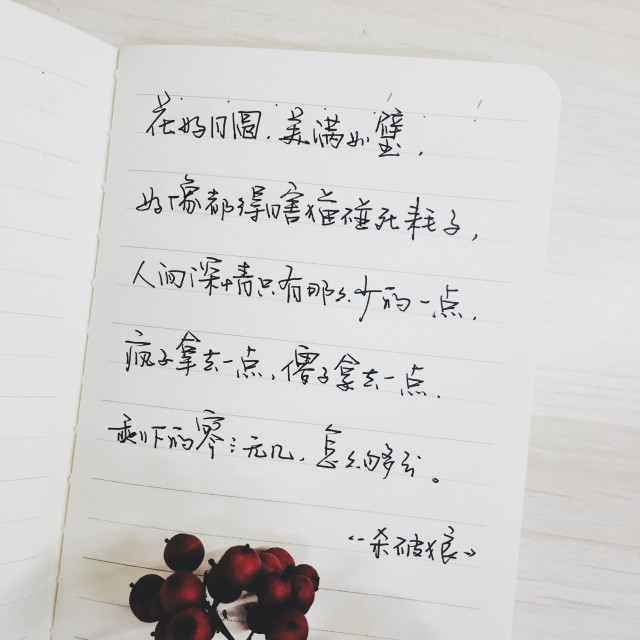 花好月圆，美满如璧，
好像都得瞎猫碰死耗子，
人间深情只有那么少的一点，
疯子拿去一点，傻子拿去一点，
剩下的寥寥无几，怎么够分。
《杀破狼》